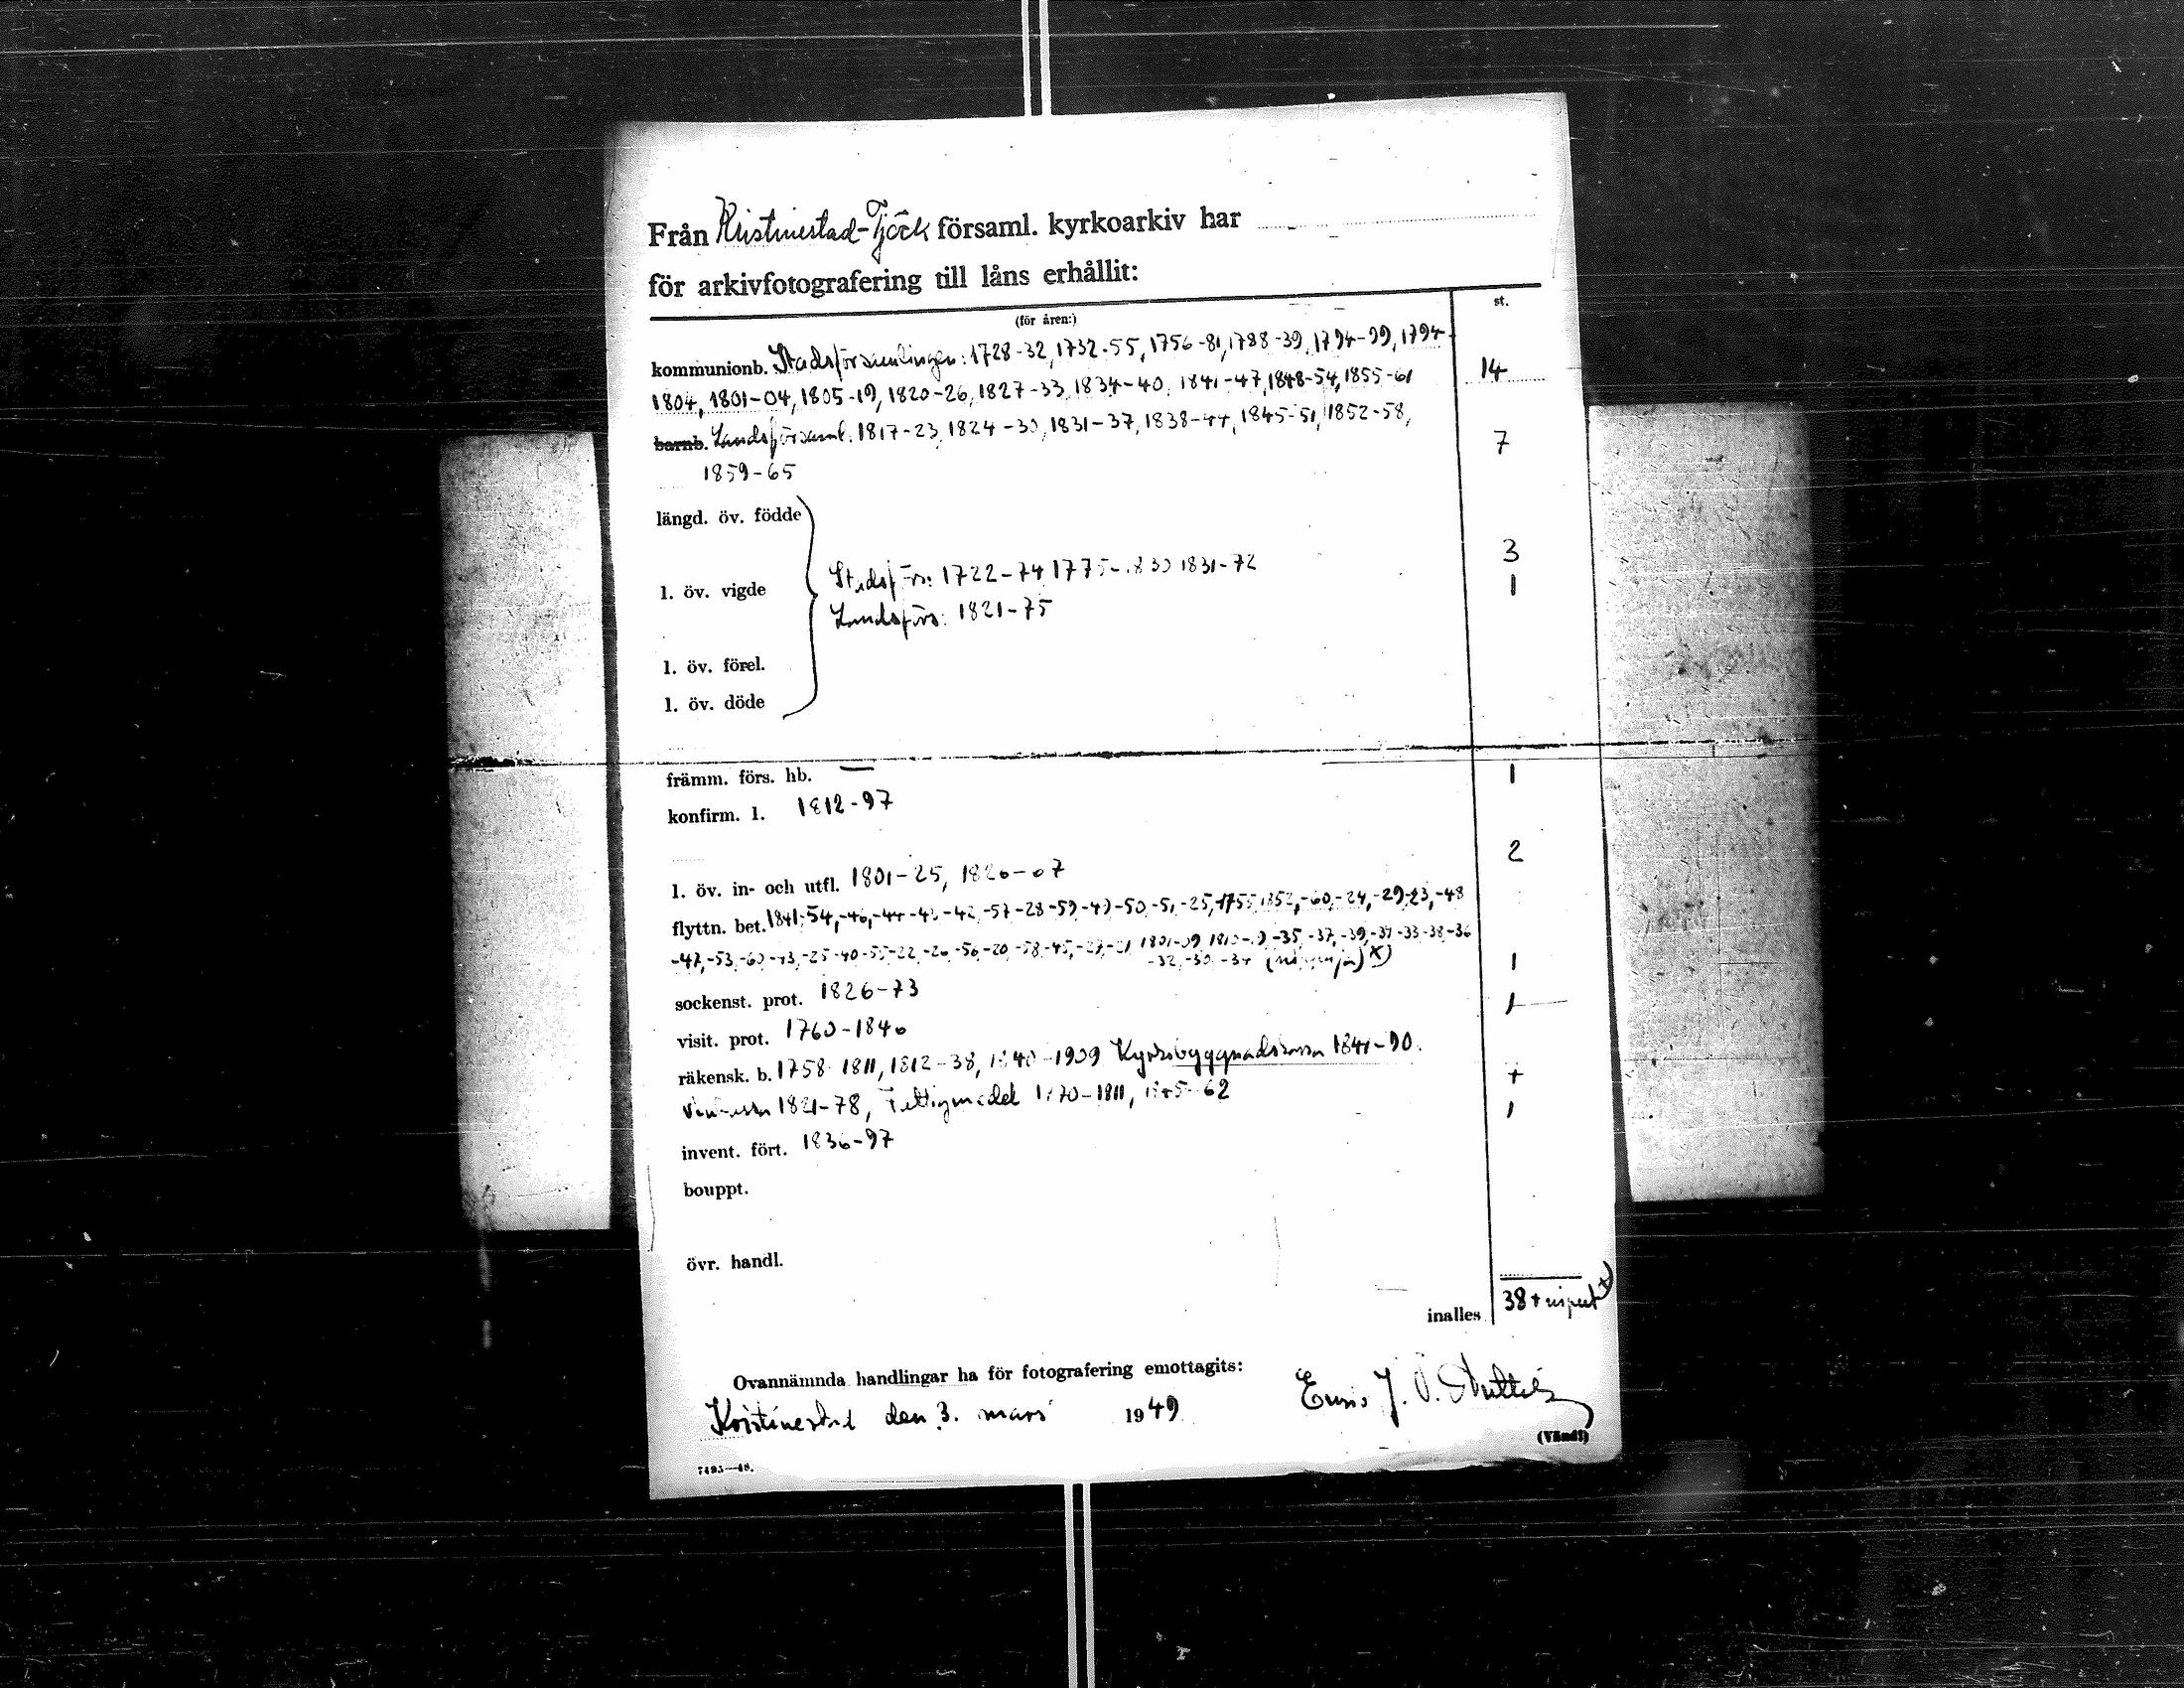 Från Kristinestad-Tjöck församl. kyrkoarkiv har
för arkivfotografering till låns erhållit:
(för åren:) st.
kommunionb. Stadsförsamlingen: 1728-32, 1732-55, 1756-81, 1788-39, 1794-99, 1794-
1804, 1801-04, 1805-19, 1820-26, 1827-33, 1834-40, 1841-47, 1848-54, 1855-61 14
barnb. Landsförsaml. 1817-23, 1824-30, 1831-37, 1838-44, 1845-51, 1852-58, 7
1859-65
längd. öv. födde
l. öv. vigde Stadsförs: 1722-74 1775-1830 1831-72 3
Landsförs: 1821-75 1
l. öv. förel.
l. öv. döde
främm. förs. hb. —
konfirm. l. 1812-97 1
l. öv. in- och utfl. 1801-25, 1826-07 2
flyttn. bet. 1841, -54, -46, -44 -43 -42, -57 -28 -59, -49, -50, -51, -25, 1755, 1852, -60, -24, -29, -23, -48
-47, -53, -60, -43, -25 -40 -55 -22, -26, -56, -20, -58, -45, -27, -21 1801-09 1810-19, -35, -37, -39, -31 -33 -38 -36
-32, -30, -34 x)
sockenst. prot. 1826-73 1
visit. prot. 1760-1840 1
räkensk. b. 1758-1811, 1812-38, 1840-1909 Kyrkobyggnadskassa 1841-90.
1821-78, Fattigmedel 1770-1811, 1845-62 +
invent. fört. 1836-97 1
bouppt.
övr. handl.
inalles 38 +
Ovannämnda handlingar ha för fotografering emottagits:
Kristinestad den 3. mars 1949 J. O. Anttila
(Vänd!)
7495—48.